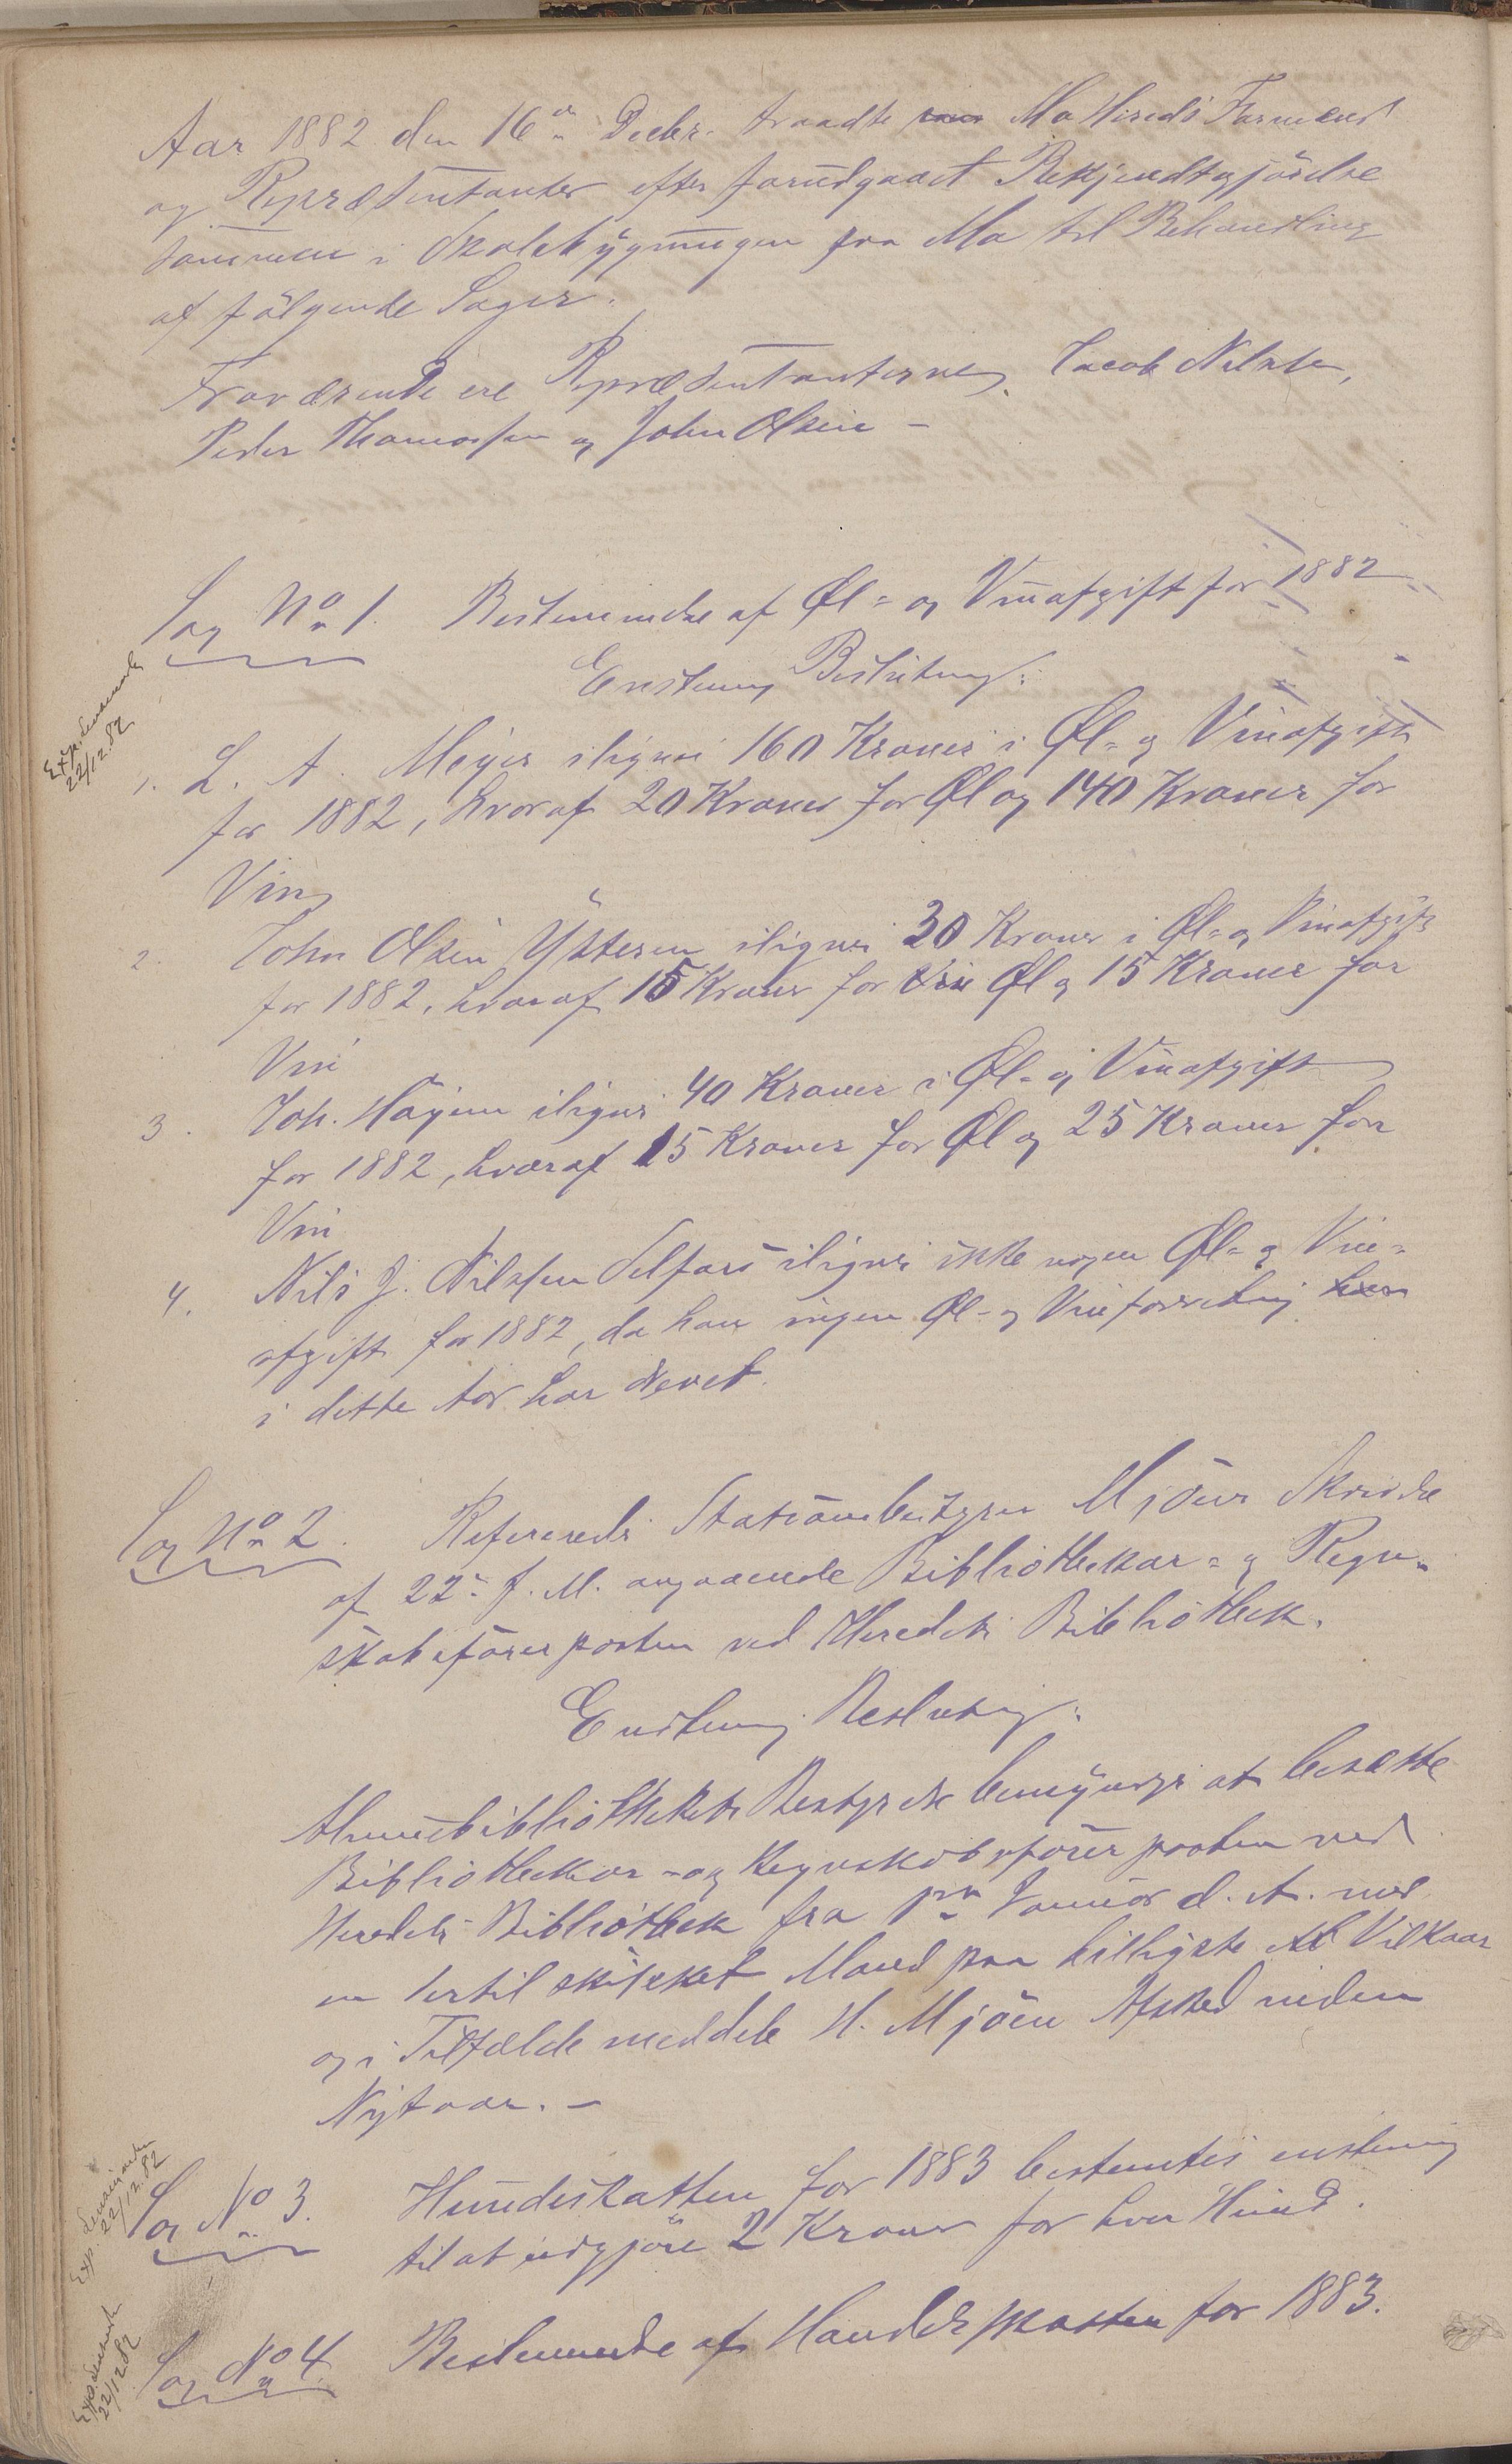 Aar 1882 den 16de Decbr. traadte Mo Herreds Formænd
og Repræsentanter efter forudgaaet Bekjendtgjörelse
sammen i Skolebygningen paa Mo til Behandling
af fölgende Sager.
Fraværende ere Repræsentanterne Jacob Nilssen,
Peder Thomassen og John Olsen –
Sag No 1. Bestemmelse af Øl- og Vinafgift for 1882
Enstemmig Beslutning:
Exp. Lensmanden
22/12.82
1. L. A. Meyer ilignes 160 Kroner i Øl- og Vinafgift
for 1882, hvoraf 20 Kroner for Øl og 140 Kroner for
Vin
2. John Olsen Ytteren ilignes 30 Kroner i Øl- og Vinafgift
for 1882, hvoraf 15 Kroner for Vin Øl og 15 Kroner for
Vin
3. Joh. Hagen ilignes 40 Kroner i Øl- og Vinafgift
for 1882, hvoraf 15 Kroner for Øl og 25 Kroner for
Vin
4. Nils J. Nilssen Selfors ilignes ikke nogen Øl- og Vin-
afgift for 1882, da han ingen Øl- og Vinforretning har
i dette Aar har drevet.
Sag No 2. Refereredes Stationsbestyrer Mjöens Skrivelse
af 22de f. M. angaaende Bibliothekar- og Regn-
skabsförerposten ved Herredets Bibliothek.
Enstemmig Beslutning:
Almuebibliothekets Bestyrelse bemyndiges at besætte
Bibliothekar- og Regnskabsförerposten ved
Herredets Bibliothek fra 1ste Januar d. A. med
en dertil skikket Mand paa billigste Vilkaar
og i Tilfælde meddele H. Mjöen Afsked inden
Nytaar. –
Exp. Lensmanden
22/12.82
Sag No 3. Hundeskatten for 1883 bestemtes enstemmig
til at udgjöre 2 Kroner for hver Hund.
Exp. Lensmanden
22/12 82
Sag No 4. Bestemmelse af Handelsskatten for 1883.